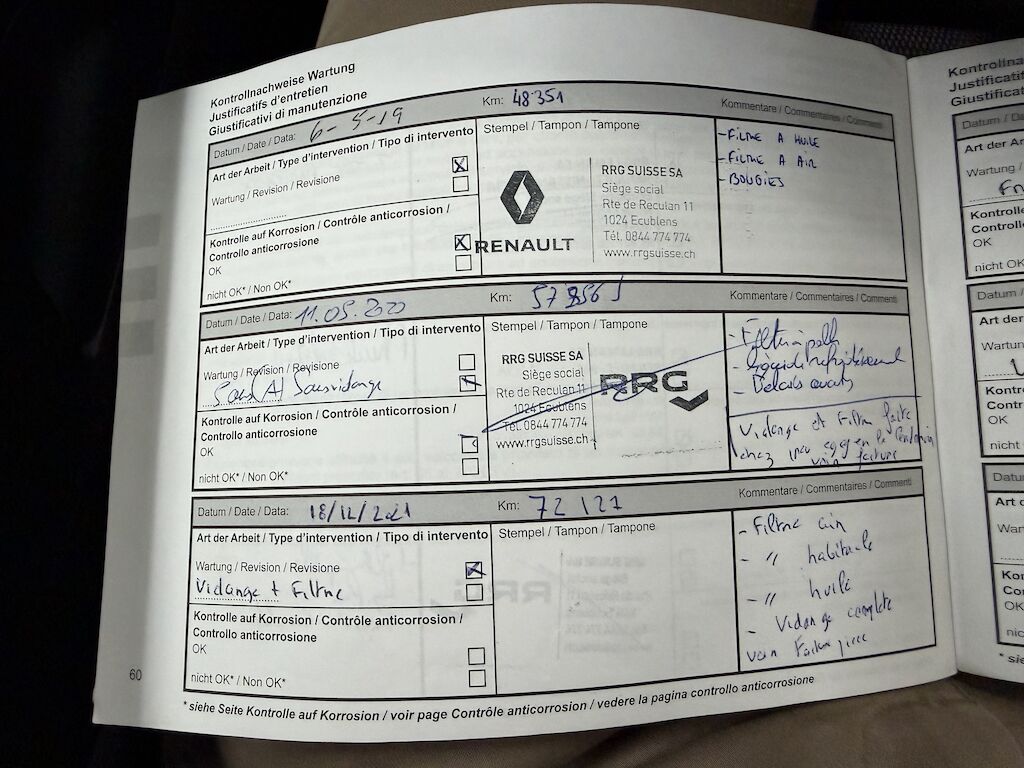 Kontrollnachweise Wartung
Justificatifs d'entretien
Giustificativi di manutenzione
Datum / Date / Data: 6-5-19 Km: 48 351 Kommentare / Commentaires / Commenti
Art der Arbeit / Type d'intervention / Tipo di intervento
Wartung / Revision / Revisione
Kontrolle auf Korrosion / Contrôle anticorrosion /
Controllo anticorrosione
OK
nicht OK* / Non OK*
Stempel / Tampon / Tampone
RENAULT
RRG SUISSE SA
Siège social
Rte de Reculan 11
1024 Ecublens
Tél. 0844 774 774
www.rrgsuisse.ch
- FILTRE A HUILE
- FILTRE A AIR
- BOUGIES
Datum / Date / Data: 11.05.2020 Km: Kommentare / Commentaires / Commenti
Art der Arbeit / Type d'intervention / Tipo di intervento
Wartung / Revision / Revisione
Kontrolle auf Korrosion / Contrôle anticorrosion /
Controllo anticorrosione
OK
nicht OK* / Non OK*
Stempel / Tampon / Tampone
RRG SUISSE SA
Siège social
Rte de Reculan 11
1024 Ecublens
Tél. 0844 774 774
www.rrgsuisse.ch
RRG
Vidange et Filtre faite
chez
voir facture
Datum / Date / Data: 18/12/2021 Km: 72 121 Kommentare / Commentaires / Commenti
Art der Arbeit / Type d'intervention / Tipo di intervento
Wartung / Revision / Revisione
Vidange + Filtre
Kontrolle auf Korrosion / Contrôle anticorrosion /
Controllo anticorrosione
OK
nicht OK* / Non OK*
Stempel / Tampon / Tampone
- Filtre air
- " habitacle
- " huile
- Vidange complete
voir Facture
60
* siehe Seite Kontrolle auf Korrosion / voir page Contrôle anticorrosion / vedere la pagina controllo anticorrosione
Kontrollna
Justificatif
Giustificati
Datum /
Art der Ar
Wartung /
Kontrolle
Controllo
OK
nicht OK*
Datum /
Art der
Wartun
Kontro
Contro
OK
nicht O
Datu
Art d
War
Kon
Con
OK
nich
* sie